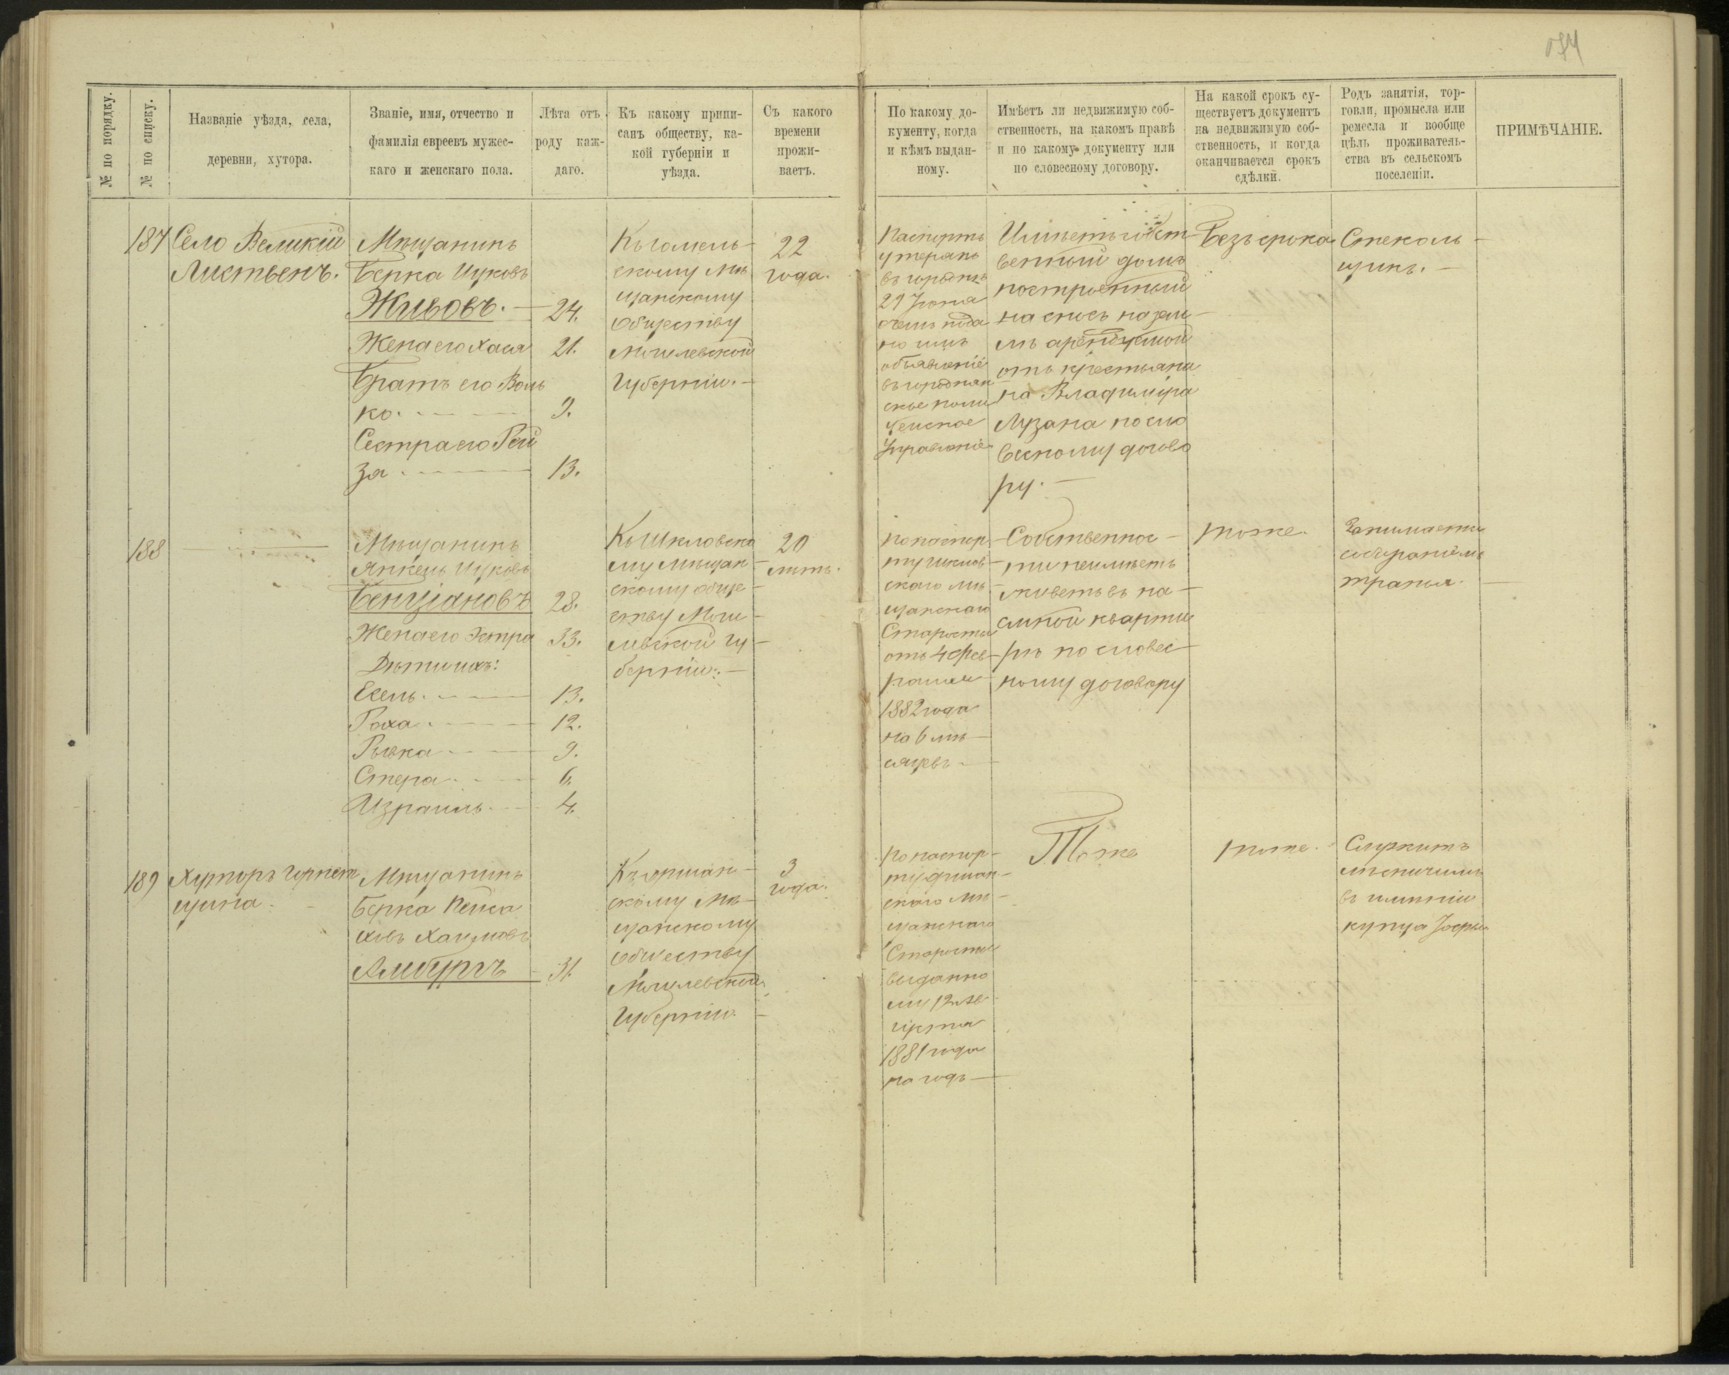 № по порядку.
№ по списку.
Названіе уѣзда, села,
деревни, хутора.
Званіе, имя, отчество и
фамилія евреевъ мужес-
каго и женскаго пола.
Лѣта отъ
роду каж-
даго.
Къ какому припи-
санъ обществу, ка-
кой губерніи и
уѣзда.
Съ какого
времени
прожи-
ваетъ.
По какому до-
кументу, когда
и кѣмъ выдан-
ному.
Имѣетъ ли недвижимую соб-
ственность, на какомъ правѣ
и по какому документу или
по словесному договору.
На какой срокъ су-
ществуетъ документъ
на недвижимую соб-
ственность, и когда
оканчивается срокъ
сдѣлки.
Родъ занятія, тор-
говли, промысла или
ремесла и вообще
цѣль проживатель-
ства въ сельскомъ
поселеніи.
ПРИМѢЧАНІЕ.
187
Село Великій
Листвень.
Мѣщанинъ
Берка Ицковъ
24.
Жена его Хася 21.
Братъ его Воль
ко. 9.
Сестра его Рей
за 13.
Къ гомель-
скому мѣ-
щанскому
обществу
могилевской
губерніи.
22
года.
Паспортъ
утерянъ
29 Іюня
объявленіе
полі
цейское
Управленіе
Имѣетъ собст-
венный домъ
построенный
на снось на зем-
лѣ арендуемой
отъ крестьяни
на Владиміра
Лузана по сло
весному догово
ру.
Безъ срока
Стеколь-
щикъ.
188
Мѣщанинъ
Янкель Ицковъ
Бенціановъ 28.
Жена его Эстра 33.
Дѣти ихъ:
Есель 13.
Роха 12.
Рывка 9.
Стера 6.
Израиль 4.
Къ Шкловско
му мѣщан-
скому обще-
ству Моги-
левской гу-
берніи.
20
лѣтъ.
По паспор-
ту шклов-
скаго мѣ-
щанскаго
Старосты
отъ 4 Фев-
раля
1882 года
на 6 мѣ-
сяцевъ
Собственнос-
ти неимѣетъ
живетъ въ на-
емной кварти
рѣ по словес-
ному договору
тоже.
Занимается
собираніемъ
тряпья.
189
Хуторъ
щина.
Мѣщанинъ
Берка Пейса
ховъ Хаимовъ
Амбургъ 31
Къ оршан-
скому мѣ-
щанскому
обществу
Могилевской
Губерніи
3
года.
По паспор-
ту оршан-
скаго мѣ-
щанскаго
Старосты
выданно
му 12 де
кабря
1881 года
на годъ
Тоже
тоже.
Служитъ
въ имѣніи
купца